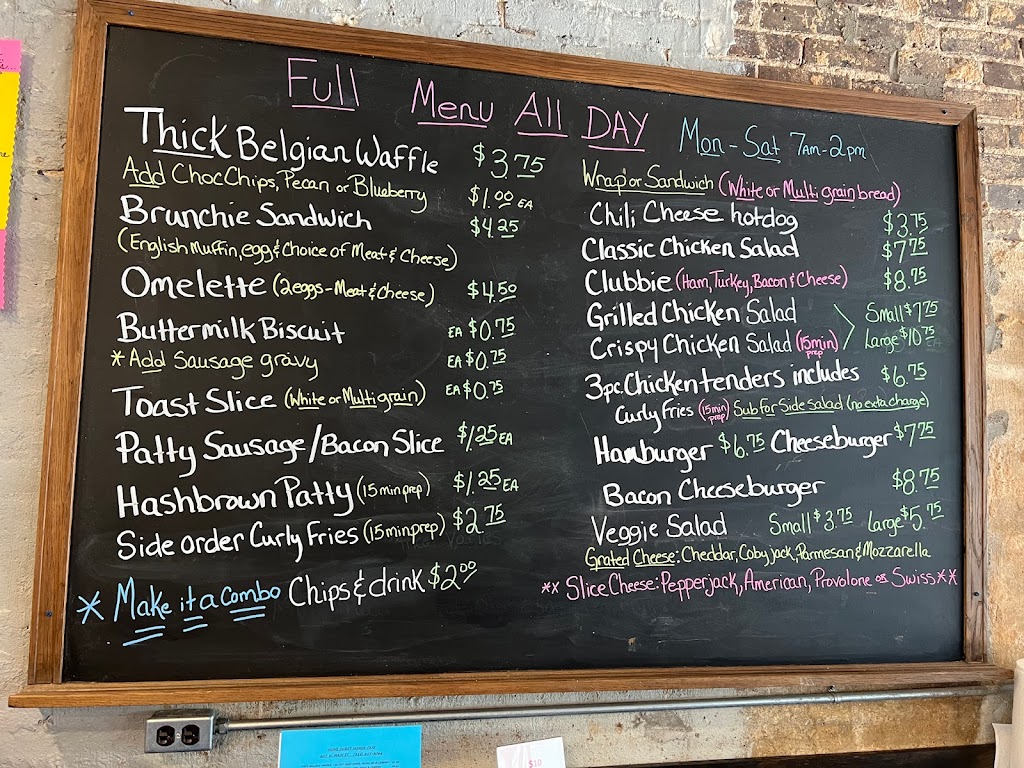 Full Menu All DAY
Mon-Sat 7AM-2pm
Thick Belgian Waffle $3.75
Add Choc Chips, Pecan or Blueberry $1.00 EA
Brunchie Sandwich $4.25
(English Muffin, egg & Choice of Meat & Cheese)
Omelette (2eggs-Meat & Cheese) $4.50
Buttermilk Biscuit EA $0.75
*Add Sausage gravy EA $0.75
Toast Slice (White or Multi grain) EA $0.75
Patty Sausage/Bacon Slice $1.25 EA
Hashbrown Patty (15 min prep) $1.25 EA
Side order Curly Fries (15 min prep) $2.75
* Make it a Combo Chips & drink $2.00
Wrap or Sandwich (White or Multi grain bread)
Chili Cheese hotdog $3.75
Classic Chicken Salad $7.75
Clubbie (Ham, Turkey, Bacon & Cheese) $8.75
Grilled Chicken Salad Small $7.75
Crispy Chicken Salad (15 min prep) Large $10.75
3pc. Chicken tenders includes $6.75
Curly Fries (15 min prep) Sub for Side salad (no exta charge)
Hamburger $6.75 Cheeseburger $7.75
Bacon Cheeseburger $8.75
Veggie Salad Small $3.75 Large $5.75
Grated Cheese: Cheddar, Coby jack, Parmesan & Mozzarella
** Slice Cheese: Pepperjack, American, Provolone or Swiss **
$10